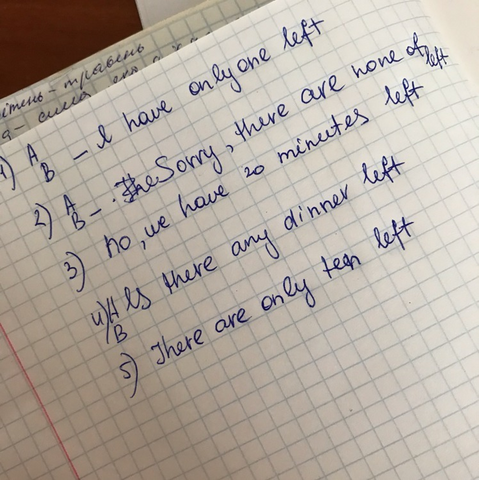 ітень - травень
1) A
B – I have only one left
2) A
B – Sorry, there are none of left
3) No, we have 20 minutes left
4) A Is there any dinner left
B
5) There are only ten left